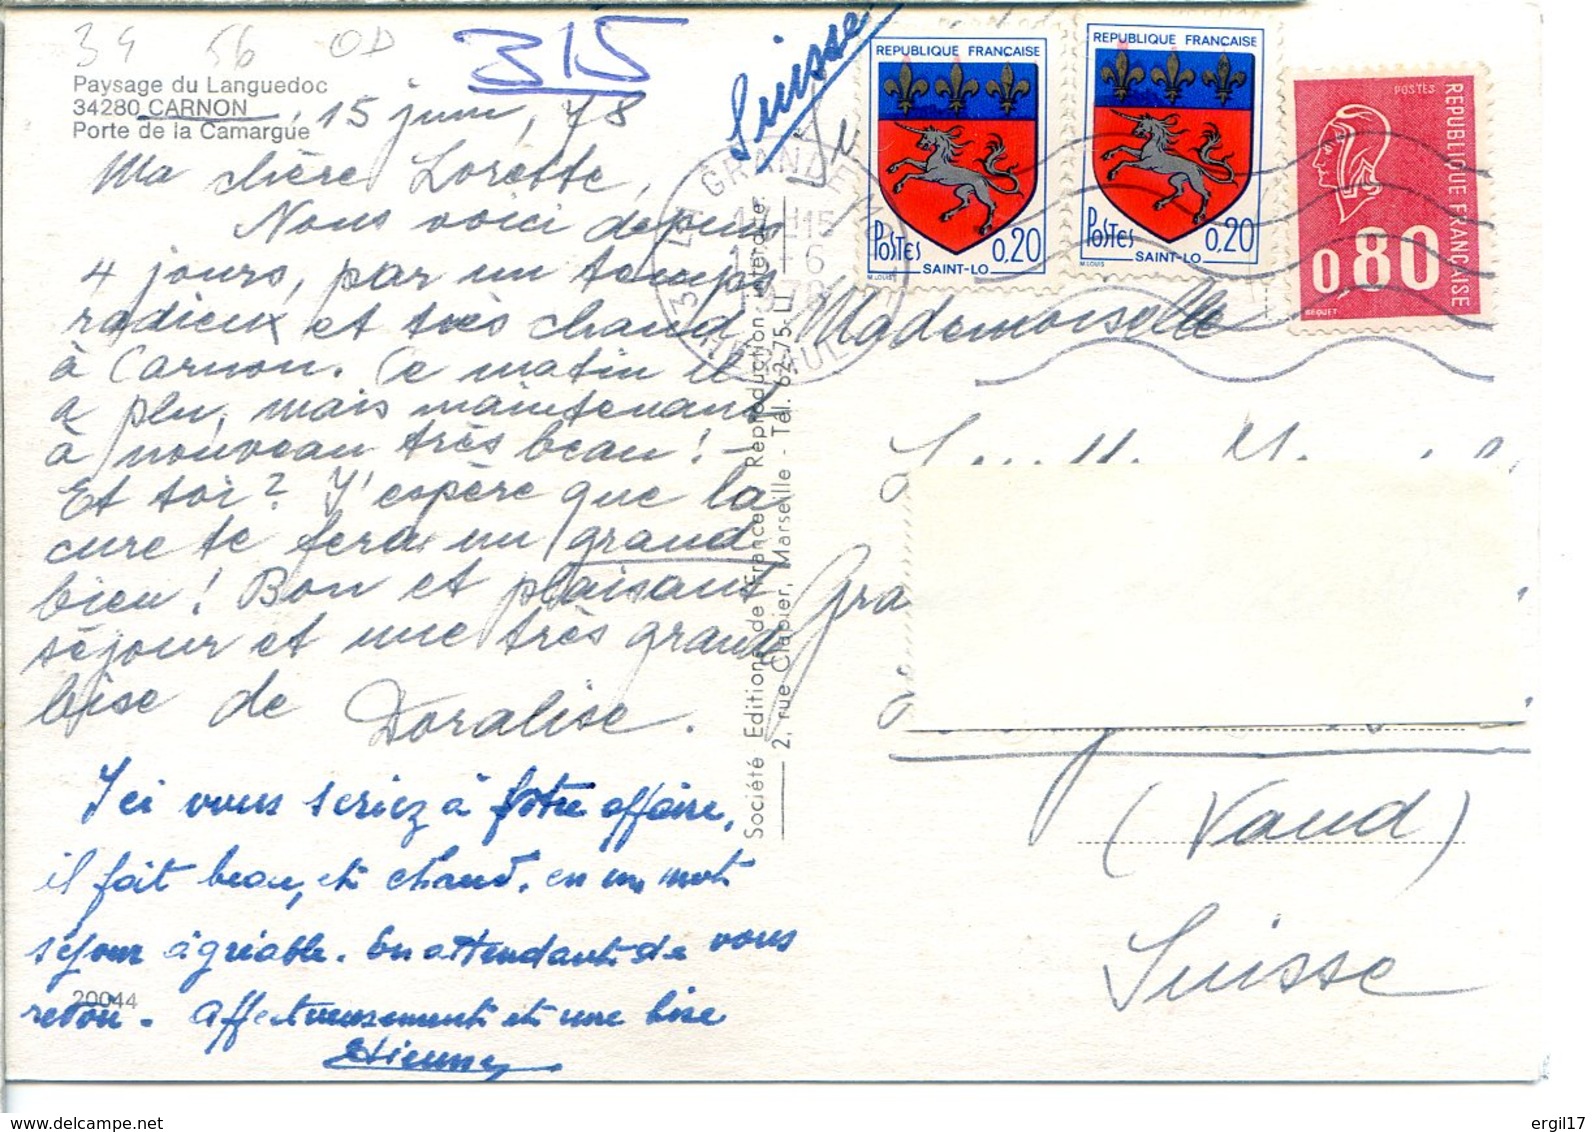 34 56 OD
315
Suisse
Paysage du Languedoc
34280 CARNON, 15 juin, 78
Porte de la Camargue
Ma chère Lorette,
Nous voici depuis
4 jours, par un temps
radieux et très chaud
à Carnon. Ce matin il
a plu, mais maintenant
à nouveau très beau! -
Et toi? J'espère que la
cure te fera un grand
bien! Bon et plaisant
séjour et une très grande
bise de Doralise.
Ici vous seriez à fotre affaire,
il fait beau, et chaud. en un mot
séjour agréable. En attendant de vous
revoir. Affectueusement et une bise
Etienne
20044
Société Editions de France Reproduction interdite.
2, rue Clapier, Marseille - Tél. 62-75-LJ
REPUBLIQUE FRANCAISE
Postes
0,20
SAINT-LO
M.LOUIS
REPUBLIQUE FRANCAISE
Postes
0,20
SAINT-LO
M.LOUIS
POSTES
REPUBLIQUE FRANCAISE
0,80
BEQUET
LA GRANDE MO
17H15
6
1978
Mademoiselle
Gra
(Vaud)
Suisse
www.delcampe.net
ergil17